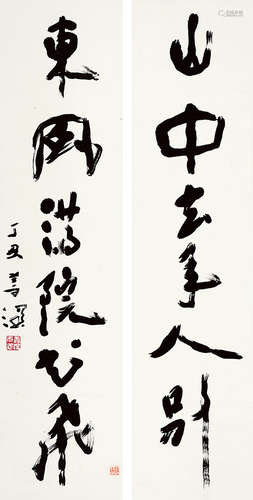 山中去年人別
東風滿院花飛
丁丑善深